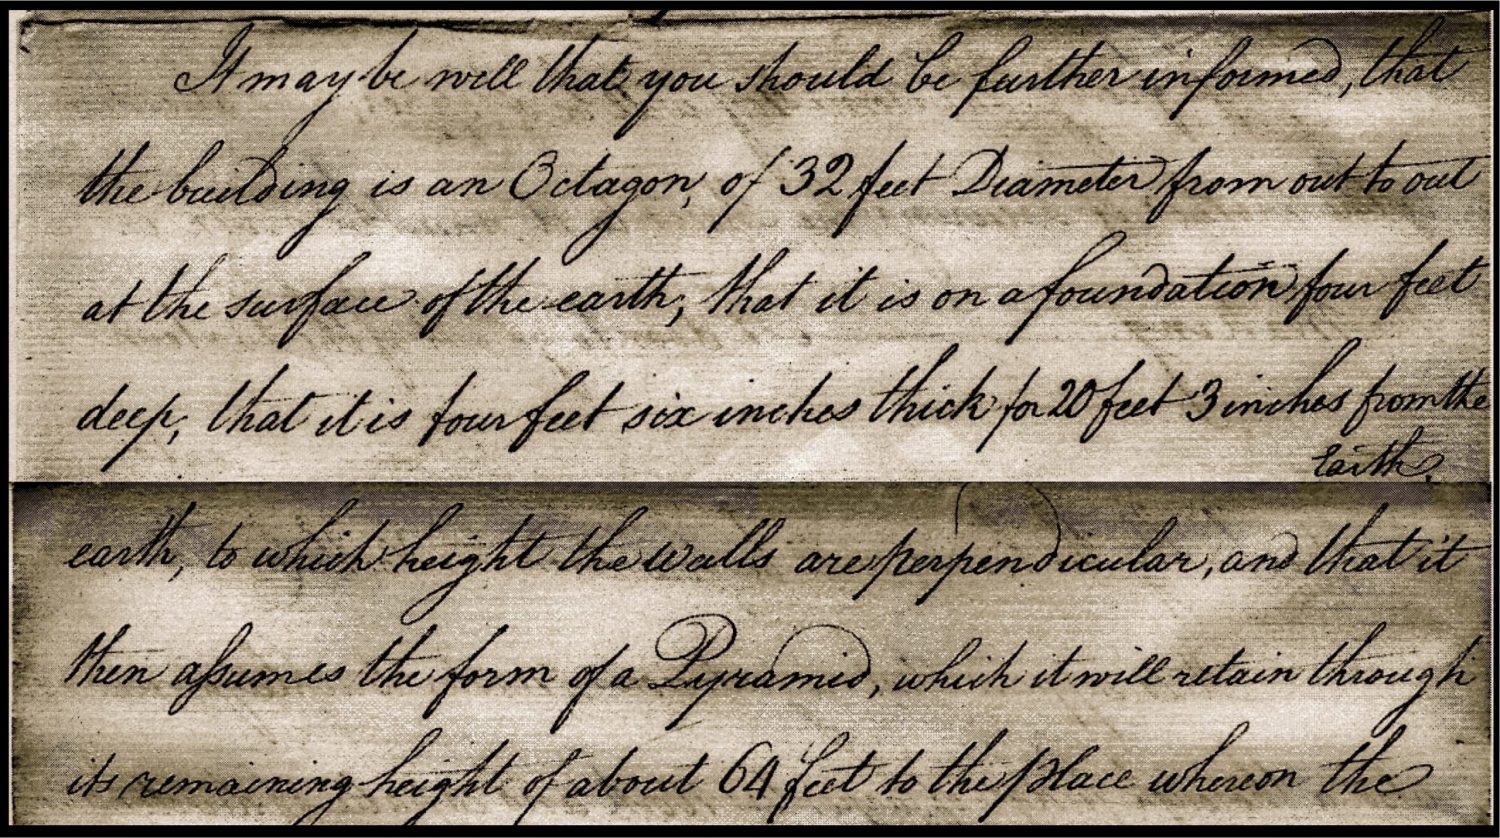 It may be well that you should be further informed, that
the building is an Octagon, of 32 feet Diameter from out to out
at the surface of the earth; that it is on a foundation four feet
deep; that it is four feet six inches thick for 20 feet 3 inches from the
Earth,
earth, to which height the walls are perpendicular, and that it
then assumes the form of a Pyramid, which it will retain through
its remaining height of about 64 feet to the place whereon the